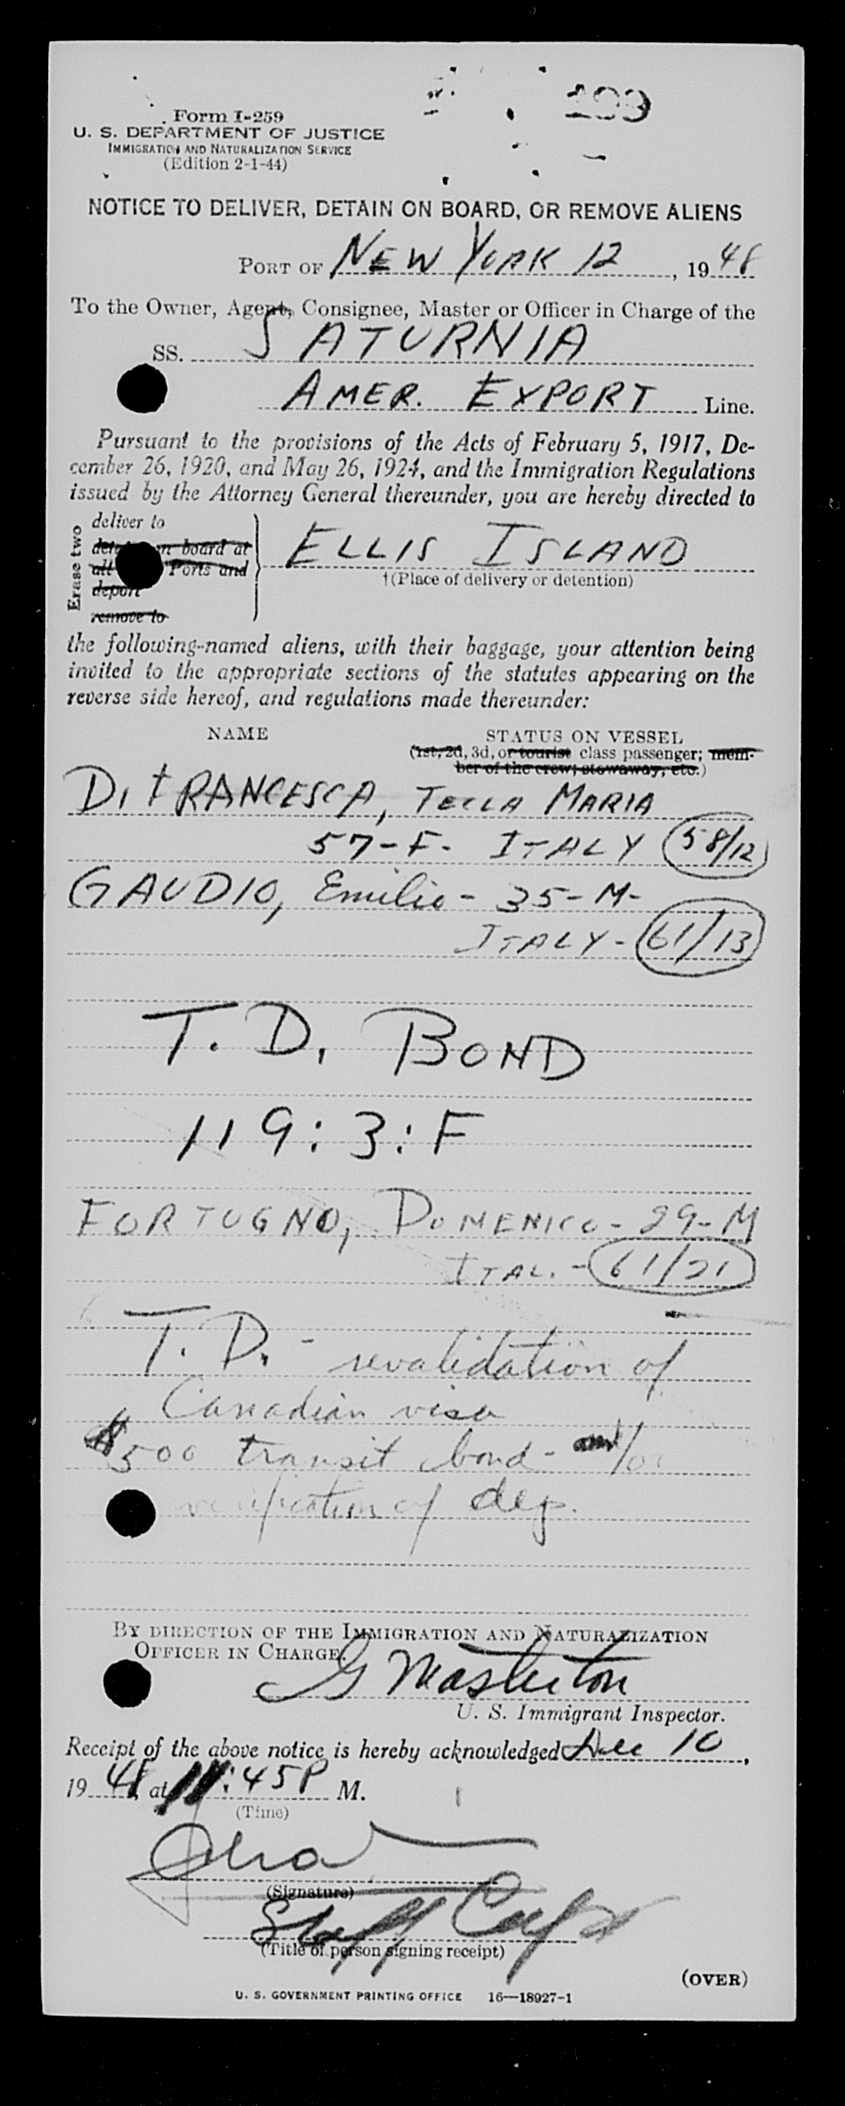 299
Form I-259
U. S. DEPARTMENT OF JUSTICE
IMMIGRATION AND NATURALIZATION SERVICE
(Edition 2-1-44)
NOTICE TO DELIVER, DETAIN ON BOARD, OR REMOVE ALIENS
PORT OF NEW YORK 12, 1948
To the Owner, Agent, Consignee, Master or Officer in Charge of the
SS. SATURNIA
AMER. EXPORT Line.
Pursuant to the provisions of the Acts of February 5, 1917, De-
cember 26, 1920, and May 26, 1924, and the Immigration Regulations
issued by the Attorney General thereunder, you are hereby directed to
Erase two
deliver to
detain on board at
all Ports and
deport
remove to
ELLIS ISLAND
†(Place of delivery or detention)
the following-named aliens, with their baggage, your attention being
invited to the appropriate sections of the statutes appearing on the
reverse side hereof, and regulations made thereunder:
NAME STATUS ON VESSEL
(1st, 2d, 3d, or tourist class passenger; mem-
ber of the crew; stowaway, etc.)
Di FRANCESCA, TECLA MARIA
57-F- ITALY 58/12
GAUDIO, Emilio - 35-M-
ITALY- 61/13
T. D. BOND
119:3:F
FORTUGNO, DOMENICO- 29-M
ITAL. - 61/21
T. D. - revalidation of
Canadian visa
$500 transit bond - and/or
verification of dep.
BY DIRECTION OF THE IMMIGRATION AND NATURALIZATION
OFFICER IN CHARGE.
G Masterton
U. S. Immigrant Inspector.
Receipt of the above notice is hereby acknowledged Dec 10,
1948, at 11:45 P M.
(Time)
(Signature)
Staff Capt
(Title of person signing receipt)
(OVER)
U. S. GOVERNMENT PRINTING OFFICE 16—18927-1